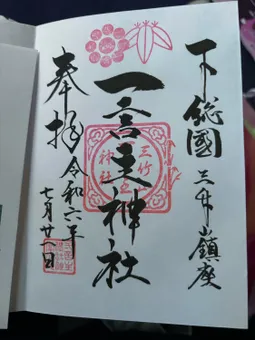 下総國 三竹山鎮座
一言主神社
三竹
神社
奉拝 令和六年
七月廿
日